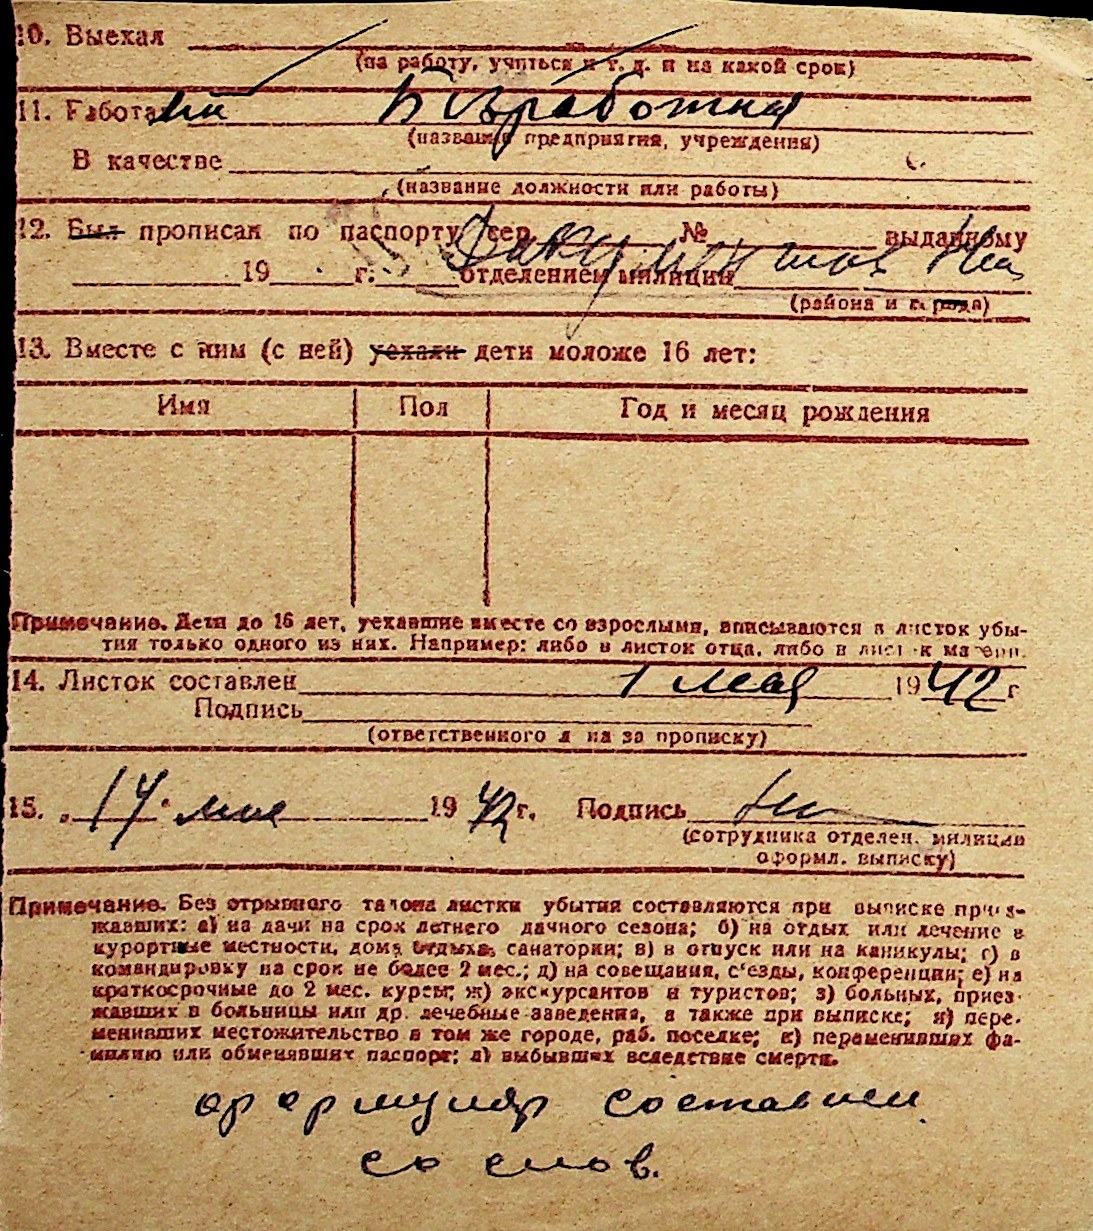 10. Выехал
(на работу, учиться и т. д. и на какой срок)
11. Работа Безработная
(название предприятия, учреждения)
В качестве
(название должности или работы)
12. Был прописан по паспорту сер. № выданному
19 г. отделением милиции
Документов
(района и города)
13. Вместе с ним (с ней) уехали дети моложе 16 лет:
Имя Пол Год и месяц рождения
Примечание. Дети до 16 лет, уехавшие вместе со взрослыми, вписываются в листок убы-
тия только одного из них. Например: либо в листок отца, либо в листок матери.
14. Листок составлен 1 мая 1942 г
Подпись
(ответственного л на за прописку)
15. „ 14 " мая 1942 г. Подпись
(сотрудника отделен. милиции
оформл. выписку)
Примечание. Без отрывного талона листки убытия составляются при выписке приез-
жавших: а) на дачи на срок летнего дачного сезона; б) на отдых или лечение в
курортные местности, дома отдыха, санатории; в) в отпуск или на каникулы; г) в
командировку на срок не более 2 мес.; д) на совещания, с'езды, конференции; е) на
краткосрочные до 2 мес. курсы; ж) экскурсантов и туристов; з) больных, приез-
жавших в больницы или др. лечебные заведения, а также при выписке; и) пере-
менивших местожительство в том же городе, раб. поселке; к) переменивших фа-
милию или обменявших паспорт; л) выбывших вследствие смерти.
формуляр составлен
со слов.